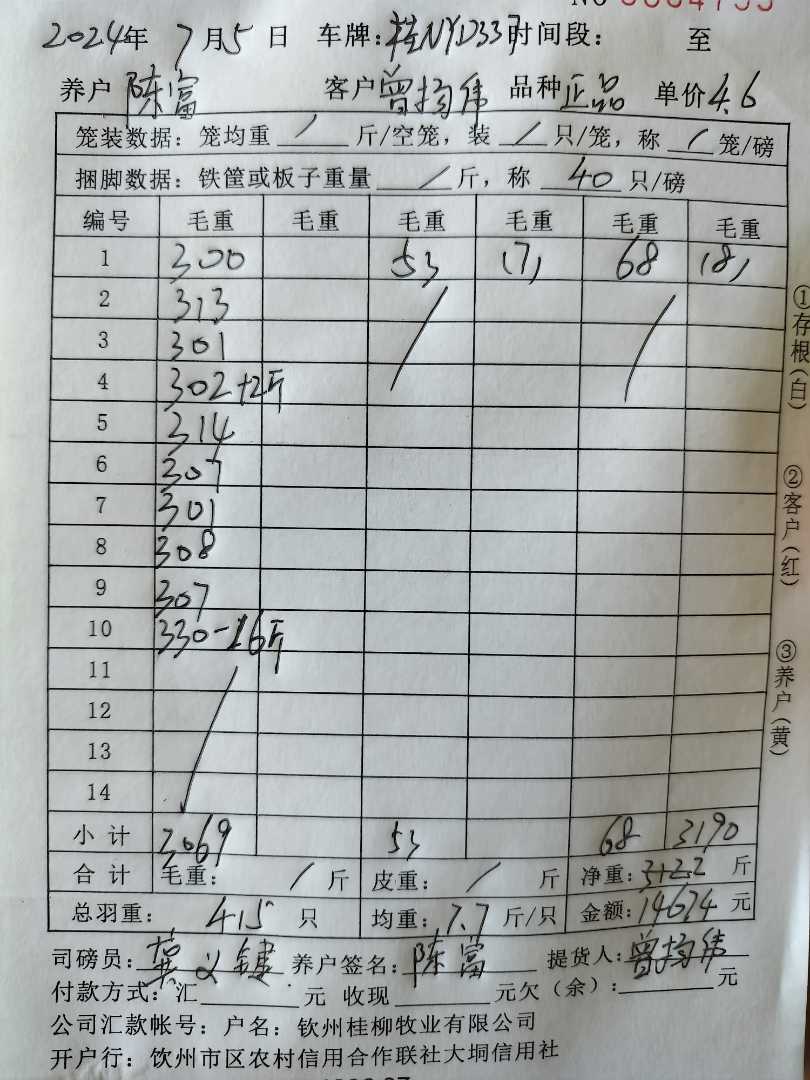 2024年 7月5日 车牌:桂NYD337 时间段: 至
养户 陈富 客户 曾扬伟 品种 正品 单价 4.6
笼装数据：笼均重 / 斤/空笼，装 / 只/笼，称 / 笼/磅
捆脚数据：铁筐或板子重量 / 斤，称 40 只/磅
编号 毛重 毛重 毛重 毛重 毛重 毛重
1 300 53 (7) 68 (8)
2 313
3 301
4 302+2斤
5 314
6 307
7 301
8 308
9 307
10 330-16斤
11
12
13
14
小计 3069 53 68 3190
合计 毛重： / 斤 皮重： / 斤 净重: 斤
总羽重： 415 只 均重：7.7 斤/只 金额:14674 元
司磅员: 义 养户签名: 陈富 提货人:曾扬伟
付款方式：汇 元 收现 元欠（余）： 元
公司汇款帐号：户名：钦州桂柳牧业有限公司
开户行：钦州市区农村信用合作联社大垌信用社
①存根(白)
②客户(红)
③养户(黄)